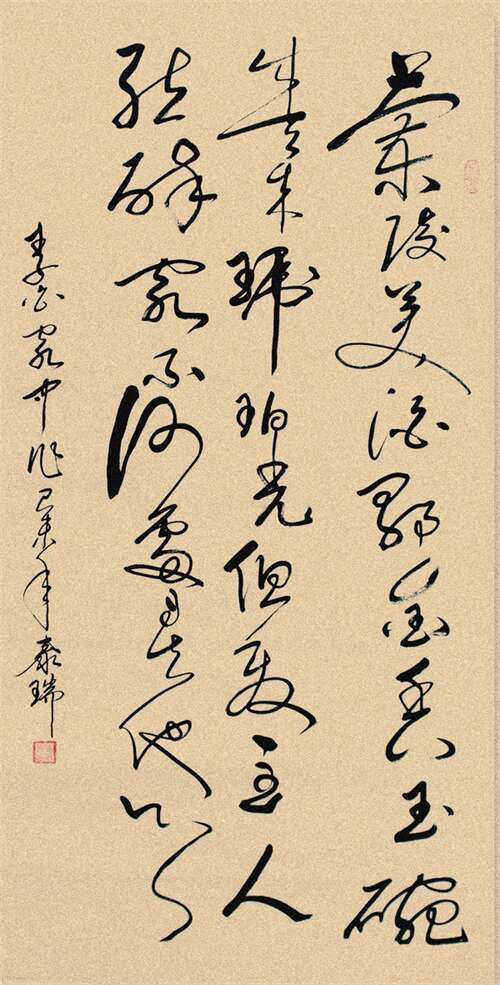 蘭陵美酒鬱金香玉碗
盛来琥珀光但使主人
能醉客不知何處是他鄉
李白客中作 年泰瑞